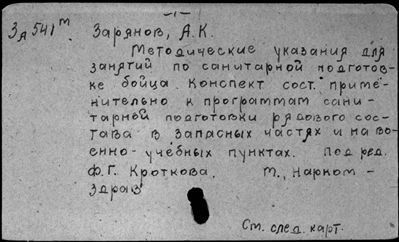 -1-
3д541м. Зарянов, А.К.
Методические указания для
занятий по санитарной подготов-
ке бойца. Конспект сост. приме-
нительно к программам сани-
тарной подготовки рядового сос-
тава в запасных частях и на во-
енно-учебных пунктах. Под ред.
Ф.Г. Кроткова. М., Нарком-
здрав
См. след. карт.